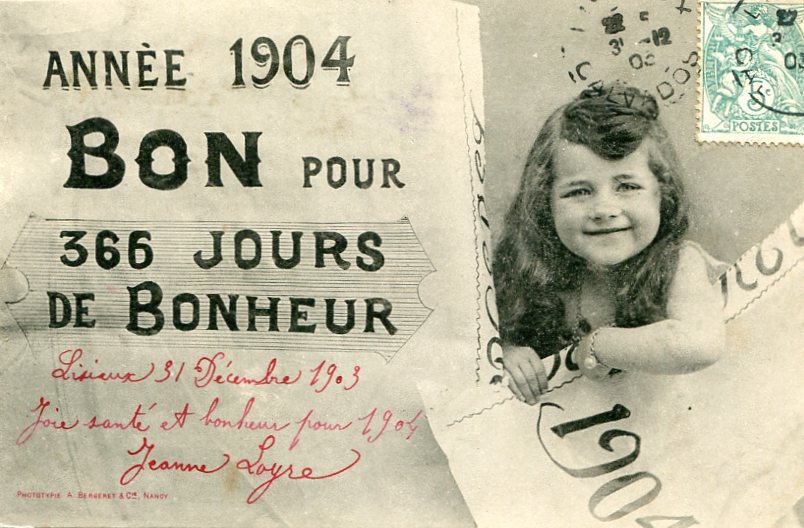 ANNÈE 1904
BON POUR
366 JOURS
DE BONHEUR
Lisieux 31 Décembre 1903
Joie santé et bonheur pour 1904
Jeanne Loyre
PHOTOTYPIE A. BERGERET & Cie, NANCY
31 -12
03
CALVADOS
5
POSTES
1904